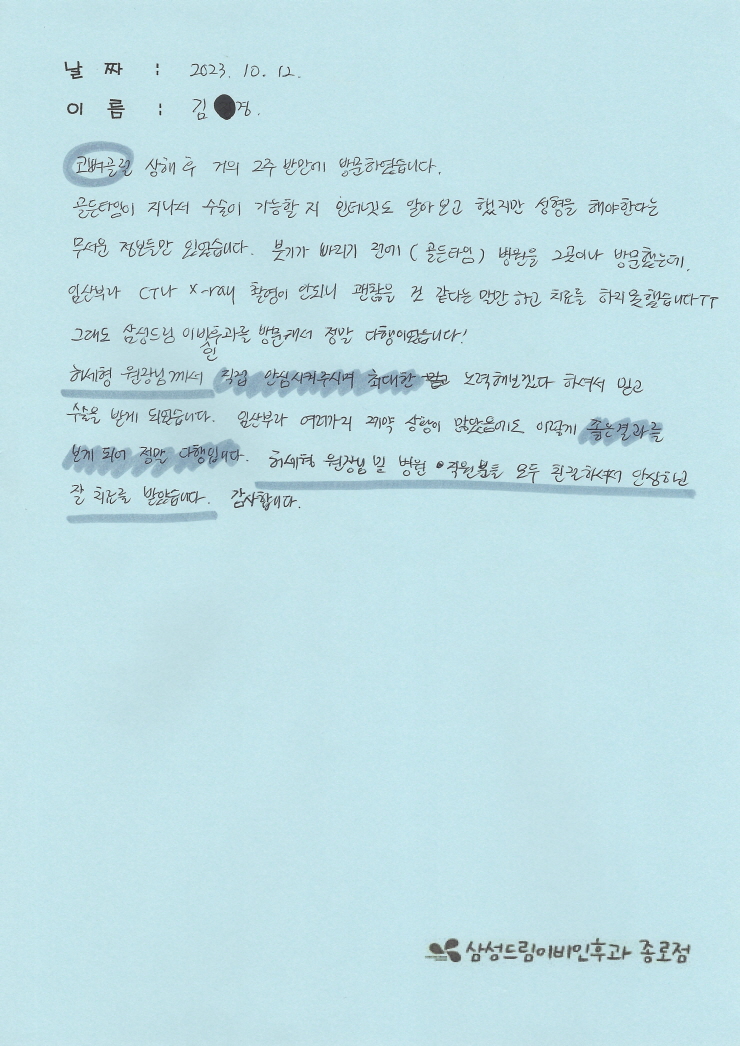 날 짜 : 2023. 10. 12.
이 름 : 김 경.
코뼈골절 상해 후 거의 2주 반만에 방문하였습니다.
골든타임이 지나서 수술이 가능할 지 인터넷도 알아보고 했지만 성형을 해야한다는
무서운 정보들만 있었습니다. 붓기가 빠지기 전에 (골든타임) 병원을 2곳이나 방문했는데,
임산부라 CT나 X-ray 촬영이 안되니 괜찮을 것 같다는 말만 하고 치료를 하지 못했습니다ㅜㅜ
그래도 삼성드림 이비인후과를 방문해서 정말 다행이었습니다!
허세형 원장님께서 직접 안심시켜주시며 최대한 노력해보겠다 하셔서 믿고
수술을 받게 되었습니다. 임산부라 여러가지 제약 상황이 많았음에도 이렇게 좋은결과를
보게 되어 정말 다행입니다. 허세형 원장님 및 병원 직원분들 모두 친절하셔서 안심하고
잘 치료를 받았습니다. 감사합니다.
삼성드림이비인후과 종로점